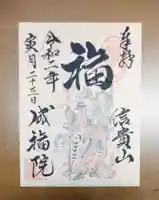 奉拝
信貴山
福
令和二年
寅月二十三日
成福院